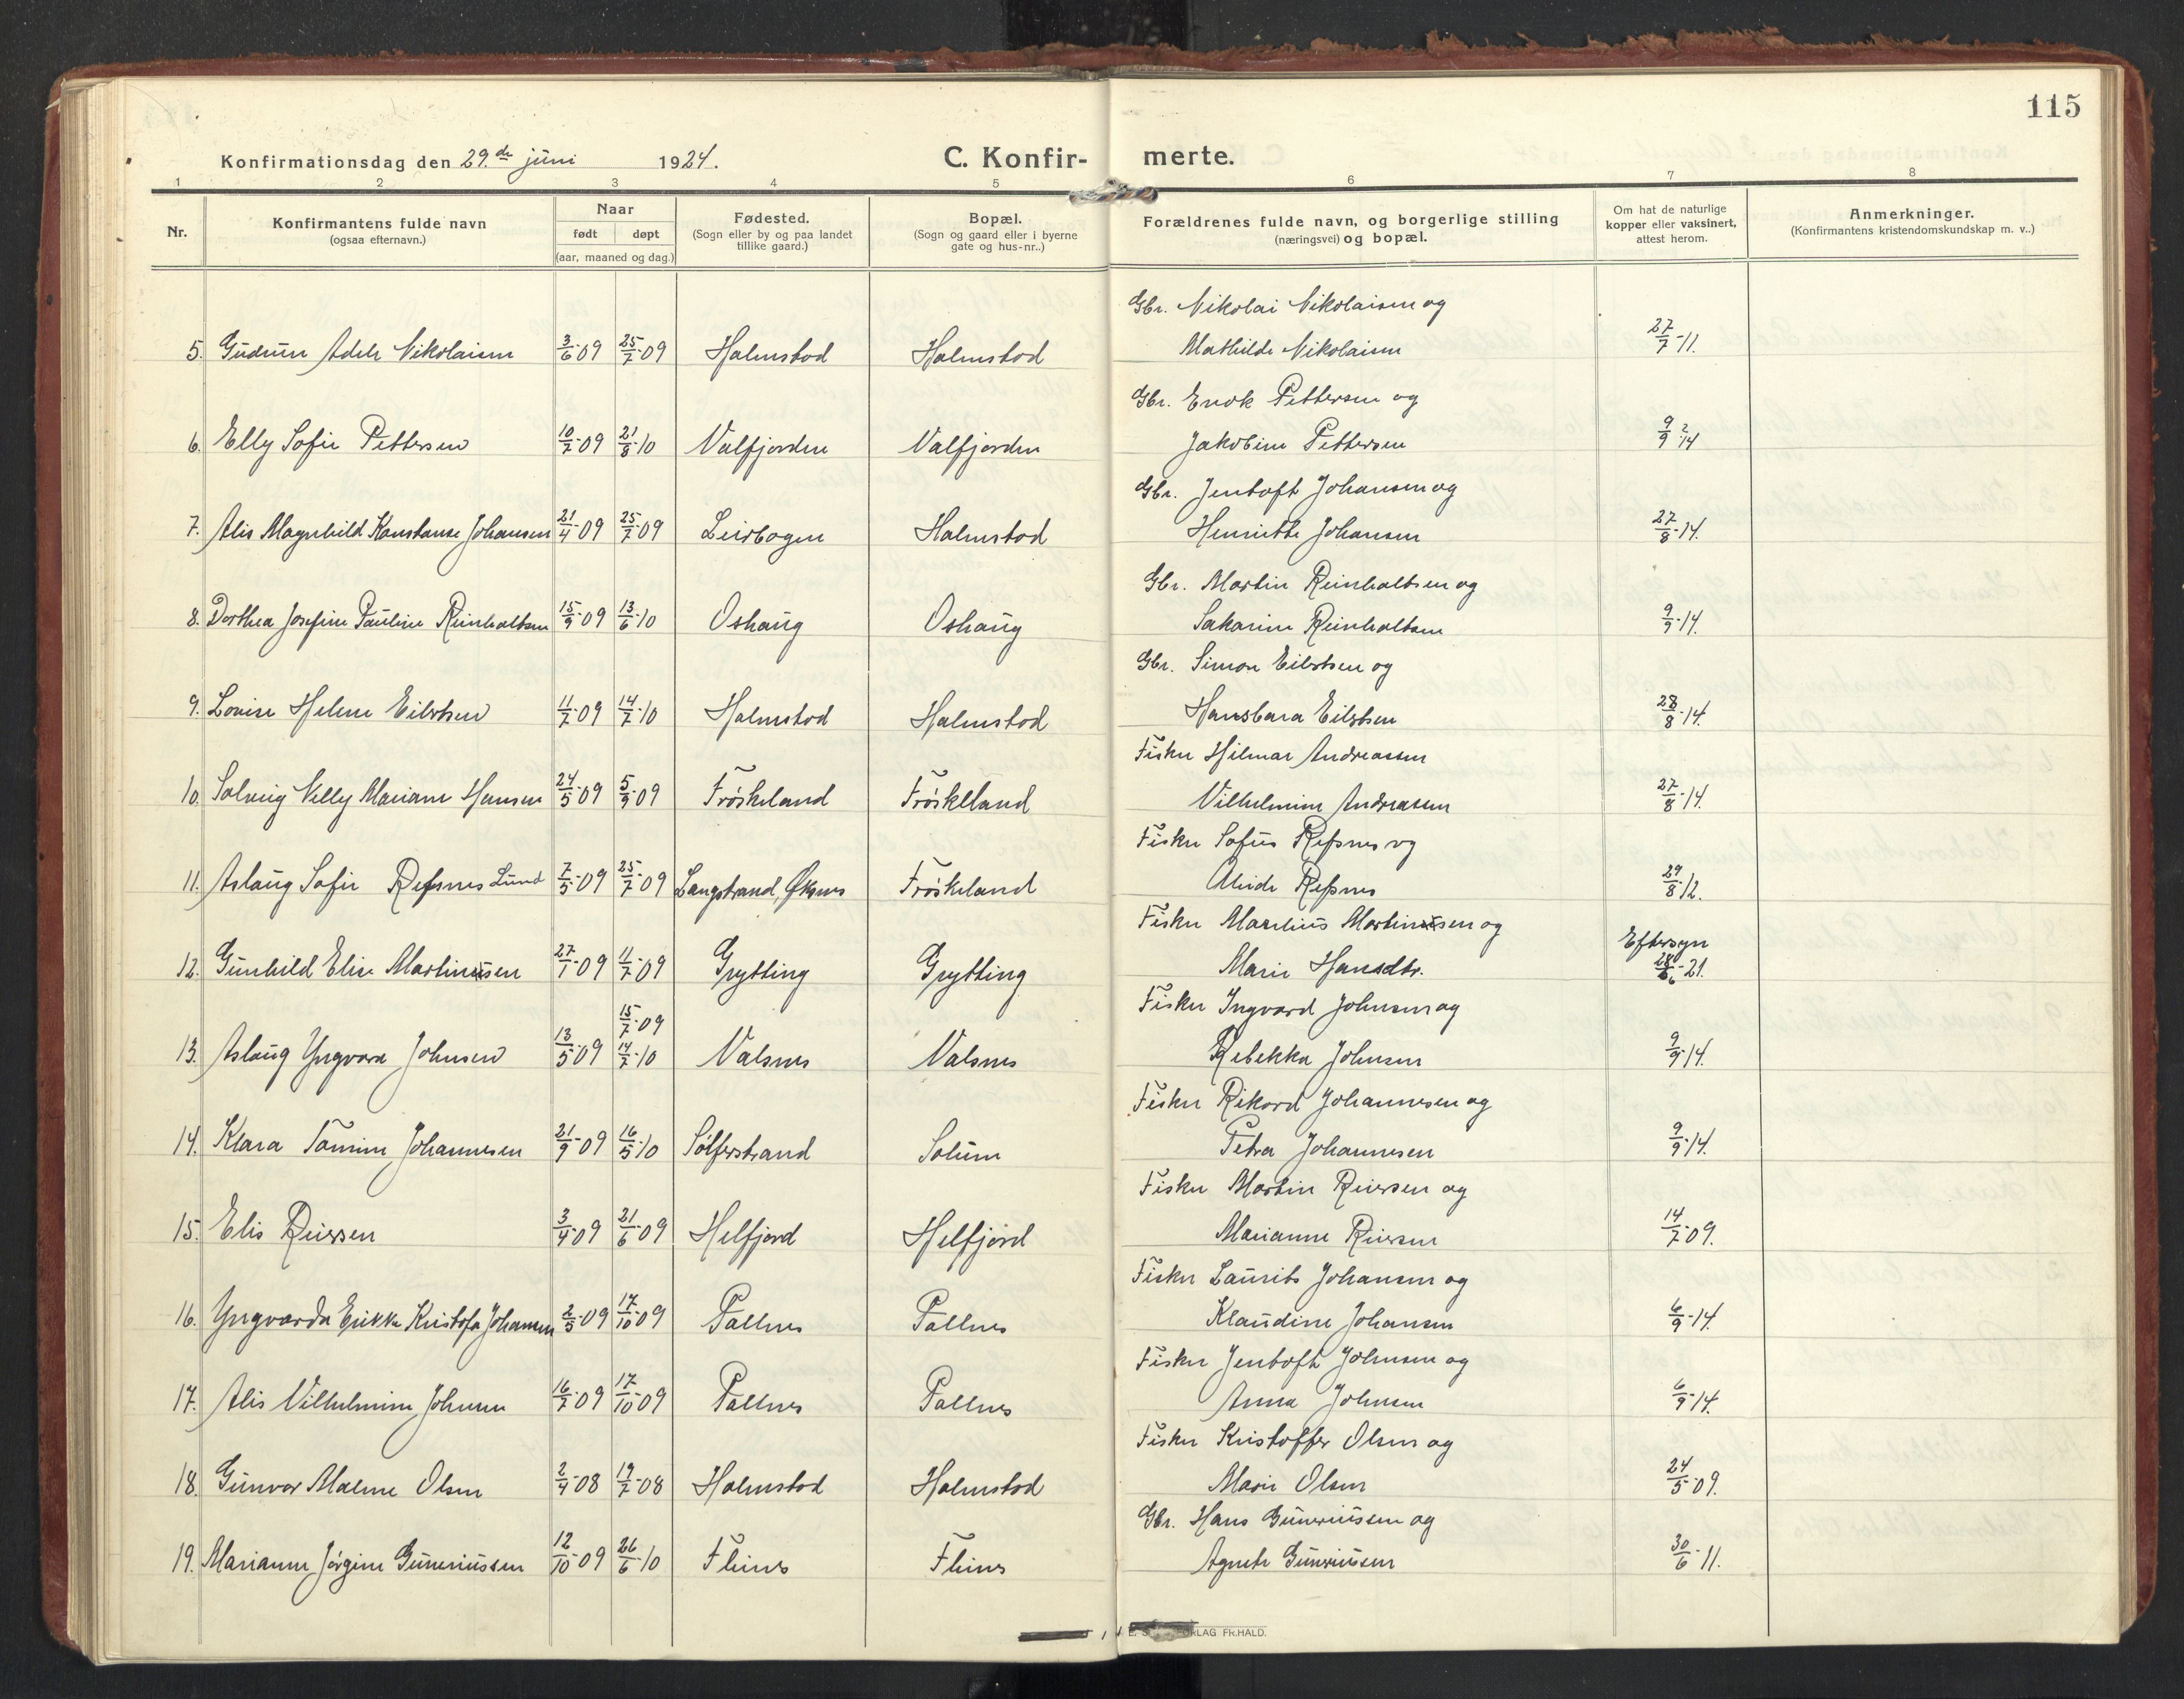 115
Konfirmationsdag den 29.de juni 1924.
C. Konfir- merte.
1 2 3 4 5 6 7 8
Nr.
Konfirmantens fulde navn
(ogsaa efternavn.)
Naar
født døpt
(aar, maaned og dag.)
Fødested.
(Sogn eller by og paa landet
tillike gaard.)
Bopæl.
(Sogn og gaard eller i byerne
gate og hus-nr..)
Forældrenes fulde navn, og borgerlige stilling
(næringsvei) og bopæl.
Om hat de naturlige
kopper eller vaksinert,
attest herom.
Anmerkninger.
(Konfirmantens kristendomskundskap m. v..)
Gbr. Nikolai Nikolaisen og
5. Gudrun Adele Nikolaisen 3/6-09 25/7-09 Holmstod Holmstod Mathilde Nikolaisen 27/7-11.
Gbr. Enok Pettersen og
6. Elly Sofie Pettersen 10/7-09 21/8-10 Valfjorden Valfjorden Jakobine Pettersen 9/9 14
Gbr. Jentoft Johansen og
7. Alis Magnhild Konstanse Johansen 21/4-09 25/7-09 Leirbogen Holmstod Henriette Johansen 27/8-14.
Gbr. Martin Reinholtsen og
8. Dorthea Josefine Pauline Reinholtsen 15/9-09 13/6-10 Oshaug Oshaug Sakarine Reinholtsen 9/9-14.
Gbr. Simon Eilertsen og
9. Lovise Helene Eilertsen 11/7-09 14/7-10 Holmstod Holmstod Hansbara Eilertsen 28/8-14.
Fisker Hilmar Andreassen
10. Solveig Nelly Mariane Hansen 24/5-09 5/9-09 Frøskeland Frøskeland Vilhelmine Andreasen 27/8-14.
Fisker Sofus Refsnes og
11. Aslaug Sofie Refsnes Lund 7/5-09 25/7-09 Langstrand, Øksnes Frøskeland Alvide Refsnes 29/8-12.
Fisker Marelius Martinsen og
12. Gunhild Elise Martinsen 27/1-09 11/7-09 Grytting Grytting Marie Hansdtr. Eftersyn
28/6-21.
Fisker Ingvard Johnsen og
15/7-09
13. Aslaug Yngvora Johnsen 13/5-09 14/7-10 Valsnes Valsnes Rebekka Johnsen 9/9-14.
Fisker Rikard Johannesen og
14. Klara Tomine Johannesen 21/9-09 16/5-10 Sølferstrand Solum Petra Johannesen 9/9-14.
Fisker Martin Reiersen og
15. Elis Reiersen 3/4-09 21/6-09 Helfjord Helfjord Marianne Reiersen 14/7-09.
Fisker Laurits Johansen og
16. Yngvarda Erikke Kristofa Johansen 2/5-09 17/10-09 Pollnes Pollnes Klaudine Johansen 6/9-14.
Fisker Jentoft Johnsen og
17. Alis Vilhelmine Johnsen 16/7-09 17/10-09 Pollnes Pollnes Anna Johnsen 6/9-14.
Fisker Kristoffer Olsen og
18. Gunvor Malene Olsen 2/4-08 19/7-08 Holmstod Holmstod Marie Olsen 24/5-09.
Gbr. Hans Guneriussen og
19. Marianne Jørgine Guneriussen 12/10-09 26/6-10 Fleines Fleines Agnete Guneriussen 30/6-11.
RLAG FR.HALD.